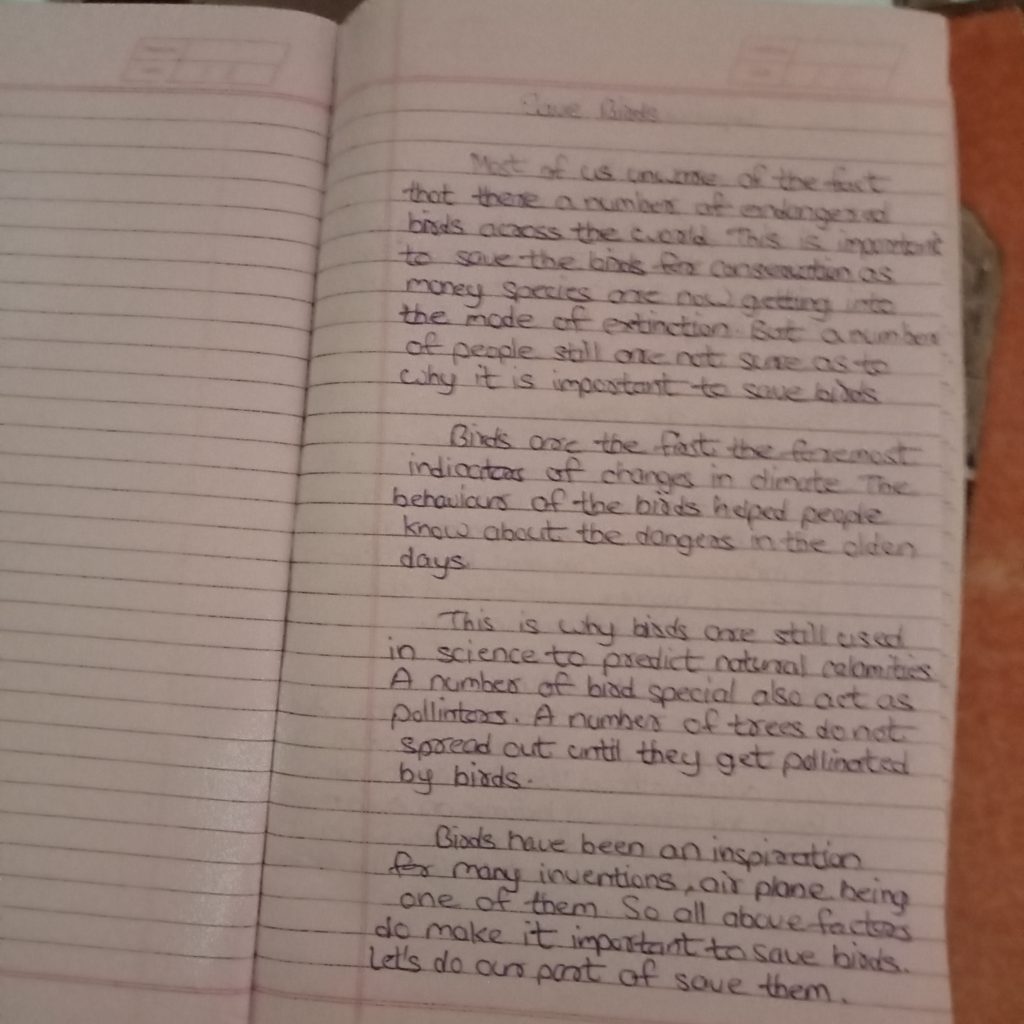 Save Birds
Most of us unawrae of the fact
that there a number of endangered
birds across the world This is important
to save the birds for conservation as
money species are now getting into
the mode of extinction. But a number
of people still are not sure as to
why it is important to save birds
Birds are the first the foremost
indicators of changes in climate The
behaviours of the birds helped people
know about the dangers in the olden
days.
This is why birds are still used
in science to predict natural calamities
A number of bird special also act as
pollintors. A number of trees do not
spread out until they get pollinated
by birds.
Birds have been an inspiration
for many inventions, air plane being
one of them. So all above factors
do make it important to save birds.
Let's do our part of save them.